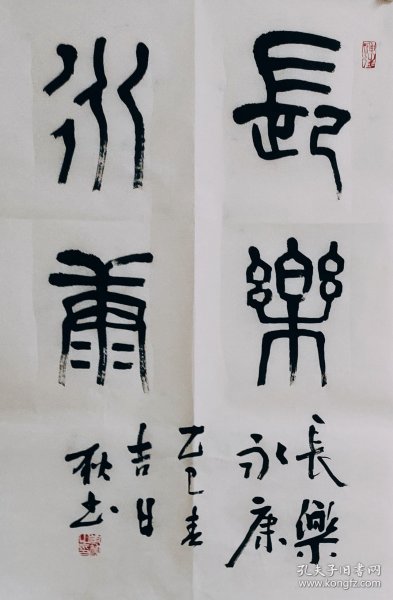 長樂
永康
長樂
永康
乙巳春
吉日
秋书
孔夫子旧书网
www.kongfz.com